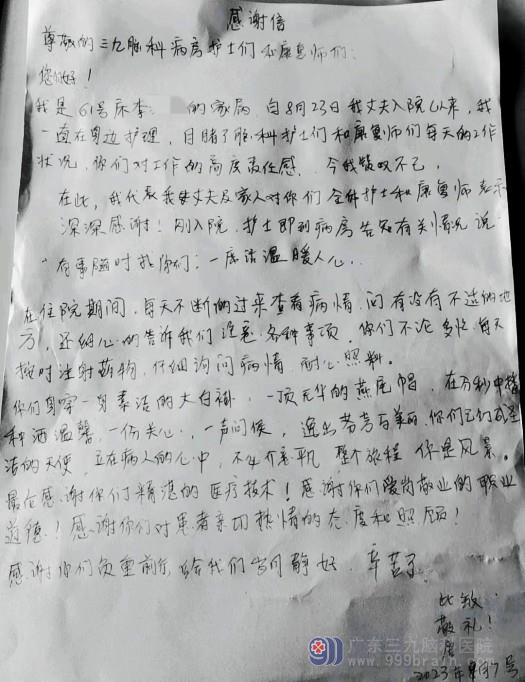 感谢信
尊敬的三九脑科病房护士们和康复师们:
您们好!
我是61号床李 的家属,自8月23日我丈夫入院以来,我
一直在身边护理,目睹了脑科护士们和康复师们每天的工作
状况,你们对工作的高度责任感,令我赞叹不已。
在此,我代表我丈夫及家人对你们全体护士和康复师表示
深深感谢!刚入院,护士即到病房告知有关情况说
"有事随时找你们:一席话温暖人心。
在住院期间,每天不断的过来查看病情,问有没有不适的地
方,还细心的告诉我们注意各种事项,你们不论多忙,每天
按时注射药物,仔细询问病情,耐心照料。
你们身穿一身素洁的大白褂,一顶无华的燕尾帽,在分秒中播
种洒温馨,一份关心,一声问候,逸出芬芳百美丽,你们已成圣
洁的天使,立在病人的心中,不乎 整个旅程,你是风景。
最后感谢你们精湛的医疗技术!感谢你们爱岗敬业的职业
道德!感谢你们对患者亲切热情的态度和照顾!
感谢你们负重前行给我们岁月静好,辛苦了
此致
敬礼!
2023年 月7号
广东三九脑科医院
www.999brain.com